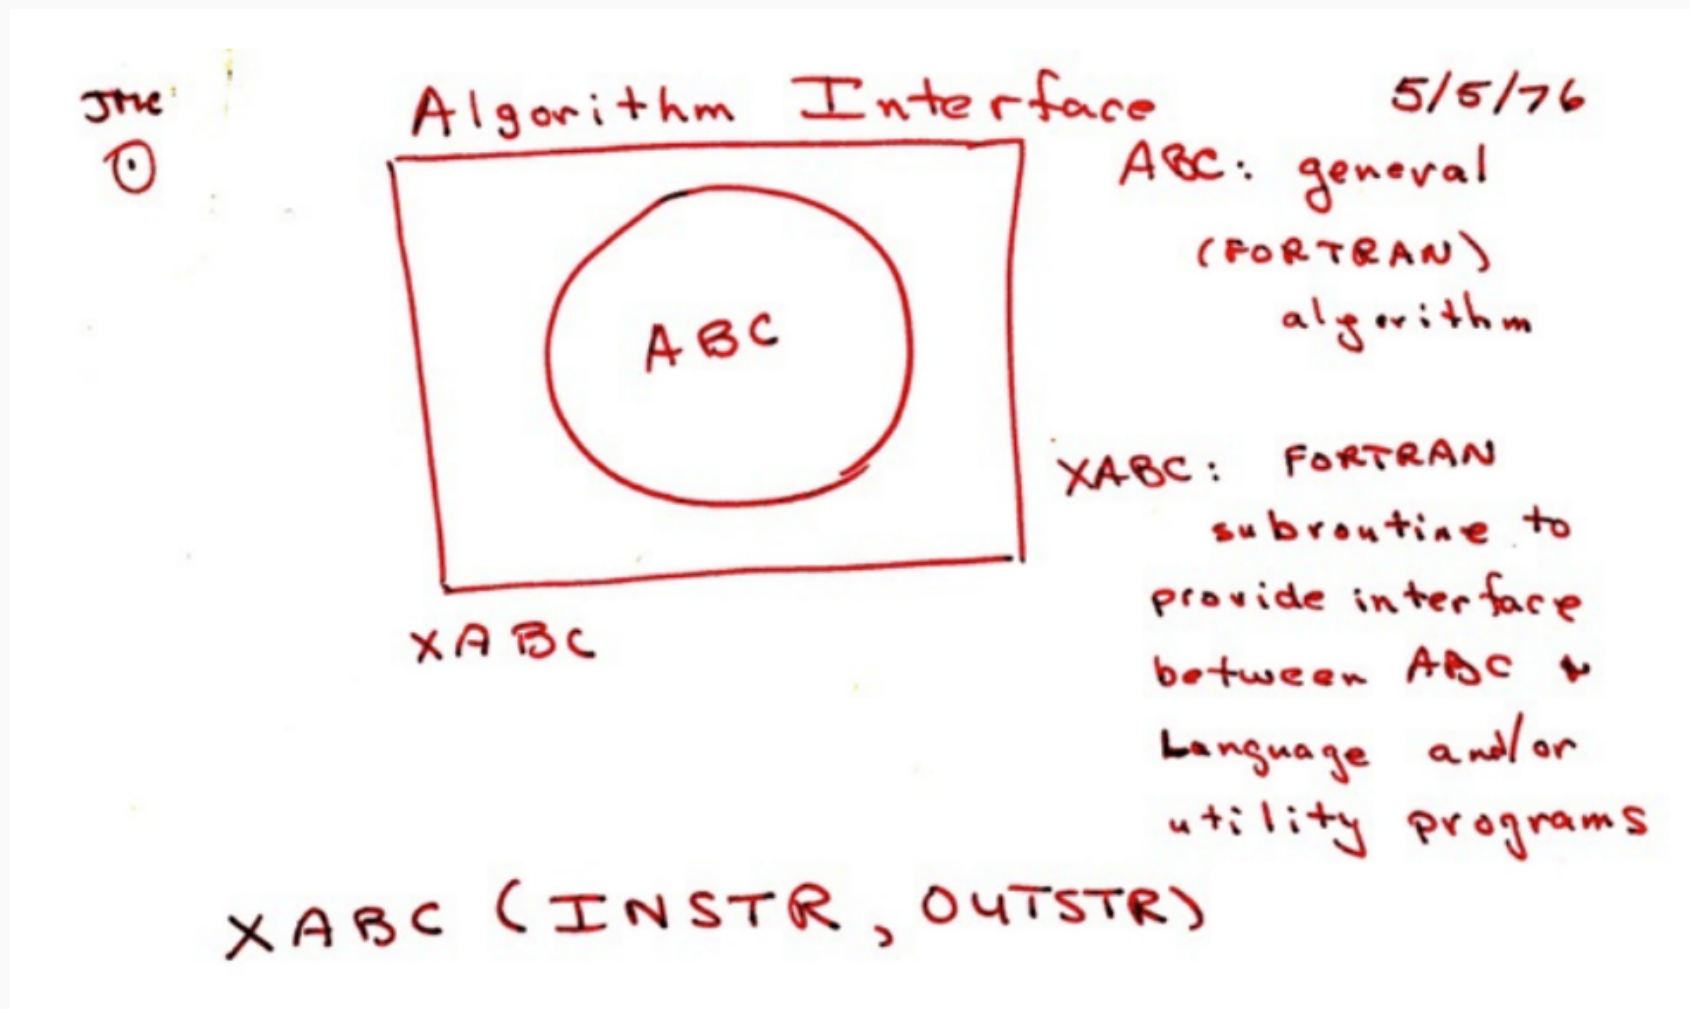 JMC
Algorithm Interface
5/5/76
ABC
XABC
ABC: general
(FORTRAN)
algorithm
XABC: FORTRAN
subroutine to
provide interface
between ABC &
Language and/or
utility programs
XABC (INSTR, OUTSTR)